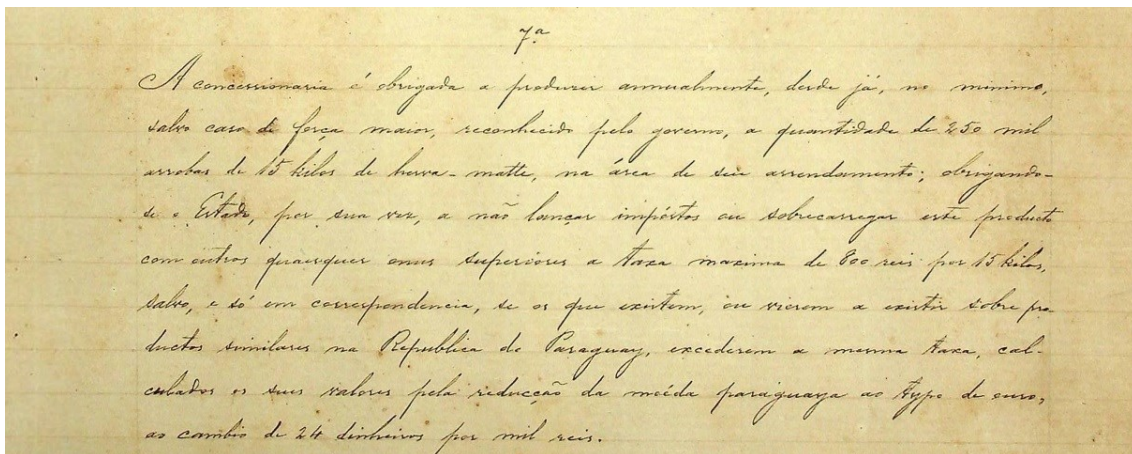 7ª
A concessionaria é obrigada a produzir annualmente, desde já, no minimo,
salvo caso de força maior, reconhecido pelo governo, a quantidade de 250 mil
arrobas de 15 kilos de herva-matte, na área de seu arrendamento; obrigando-
se o Estado, por sua vez, a não lançar impóstos ou sobrecarregar este producto
com outros quaesquer onus superiores a taxa maxima de 800 reis por 15 kilos,
salvo, e só em correspondencia, se os que existem, ou vierem a existir sobre pro-
ductos similares na Republica do Paraguay, excederem a mesma taxa, cal-
culados os seus valores pela reducção da moéda paraguaya ao typo de ouro,
ao cambio de 24 dinheiros por mil reis.